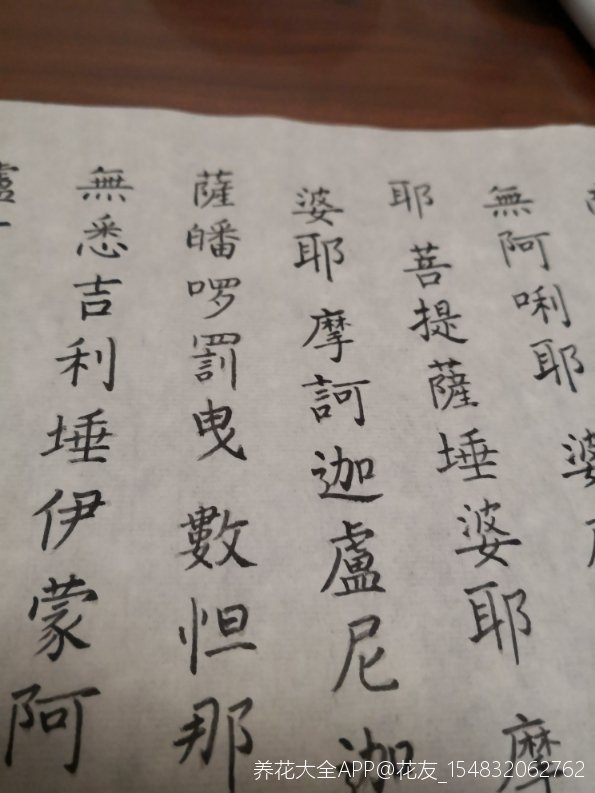 無阿唎耶 婆
耶 菩提薩埵婆耶 摩
婆耶 摩訶迦盧尼迦
薩皤啰罰曳 數怛那
無悉吉利埵伊蒙阿
養花大全APP@花友_154832062762